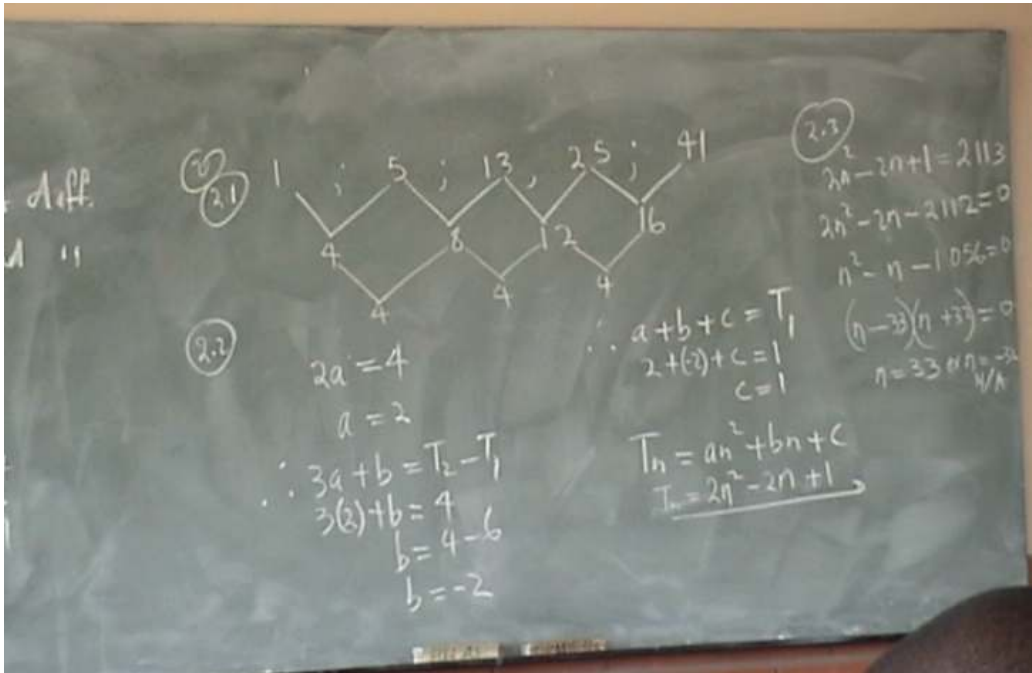 diff.
"
2.1
1 ; 5 ; 13 , 25 ; 41
4 8 12 16
4 4 4
2.2
2a = 4
a = 2
∴ 3a + b = T₂ - T₁
3(2) + b = 4
b = 4 - 6
b = -2
∴ a + b + c = T₁
2 + (-2) + c = 1
c = 1
Tₙ = an² + bn + c
Tₙ = 2n² - 2n + 1
2.3
2n² - 2n + 1 = 2113
2n² - 2n - 2112 = 0
n² - n - 1056 = 0
(n - 33)(n + 32) = 0
n = 33 or n = -32
N/A